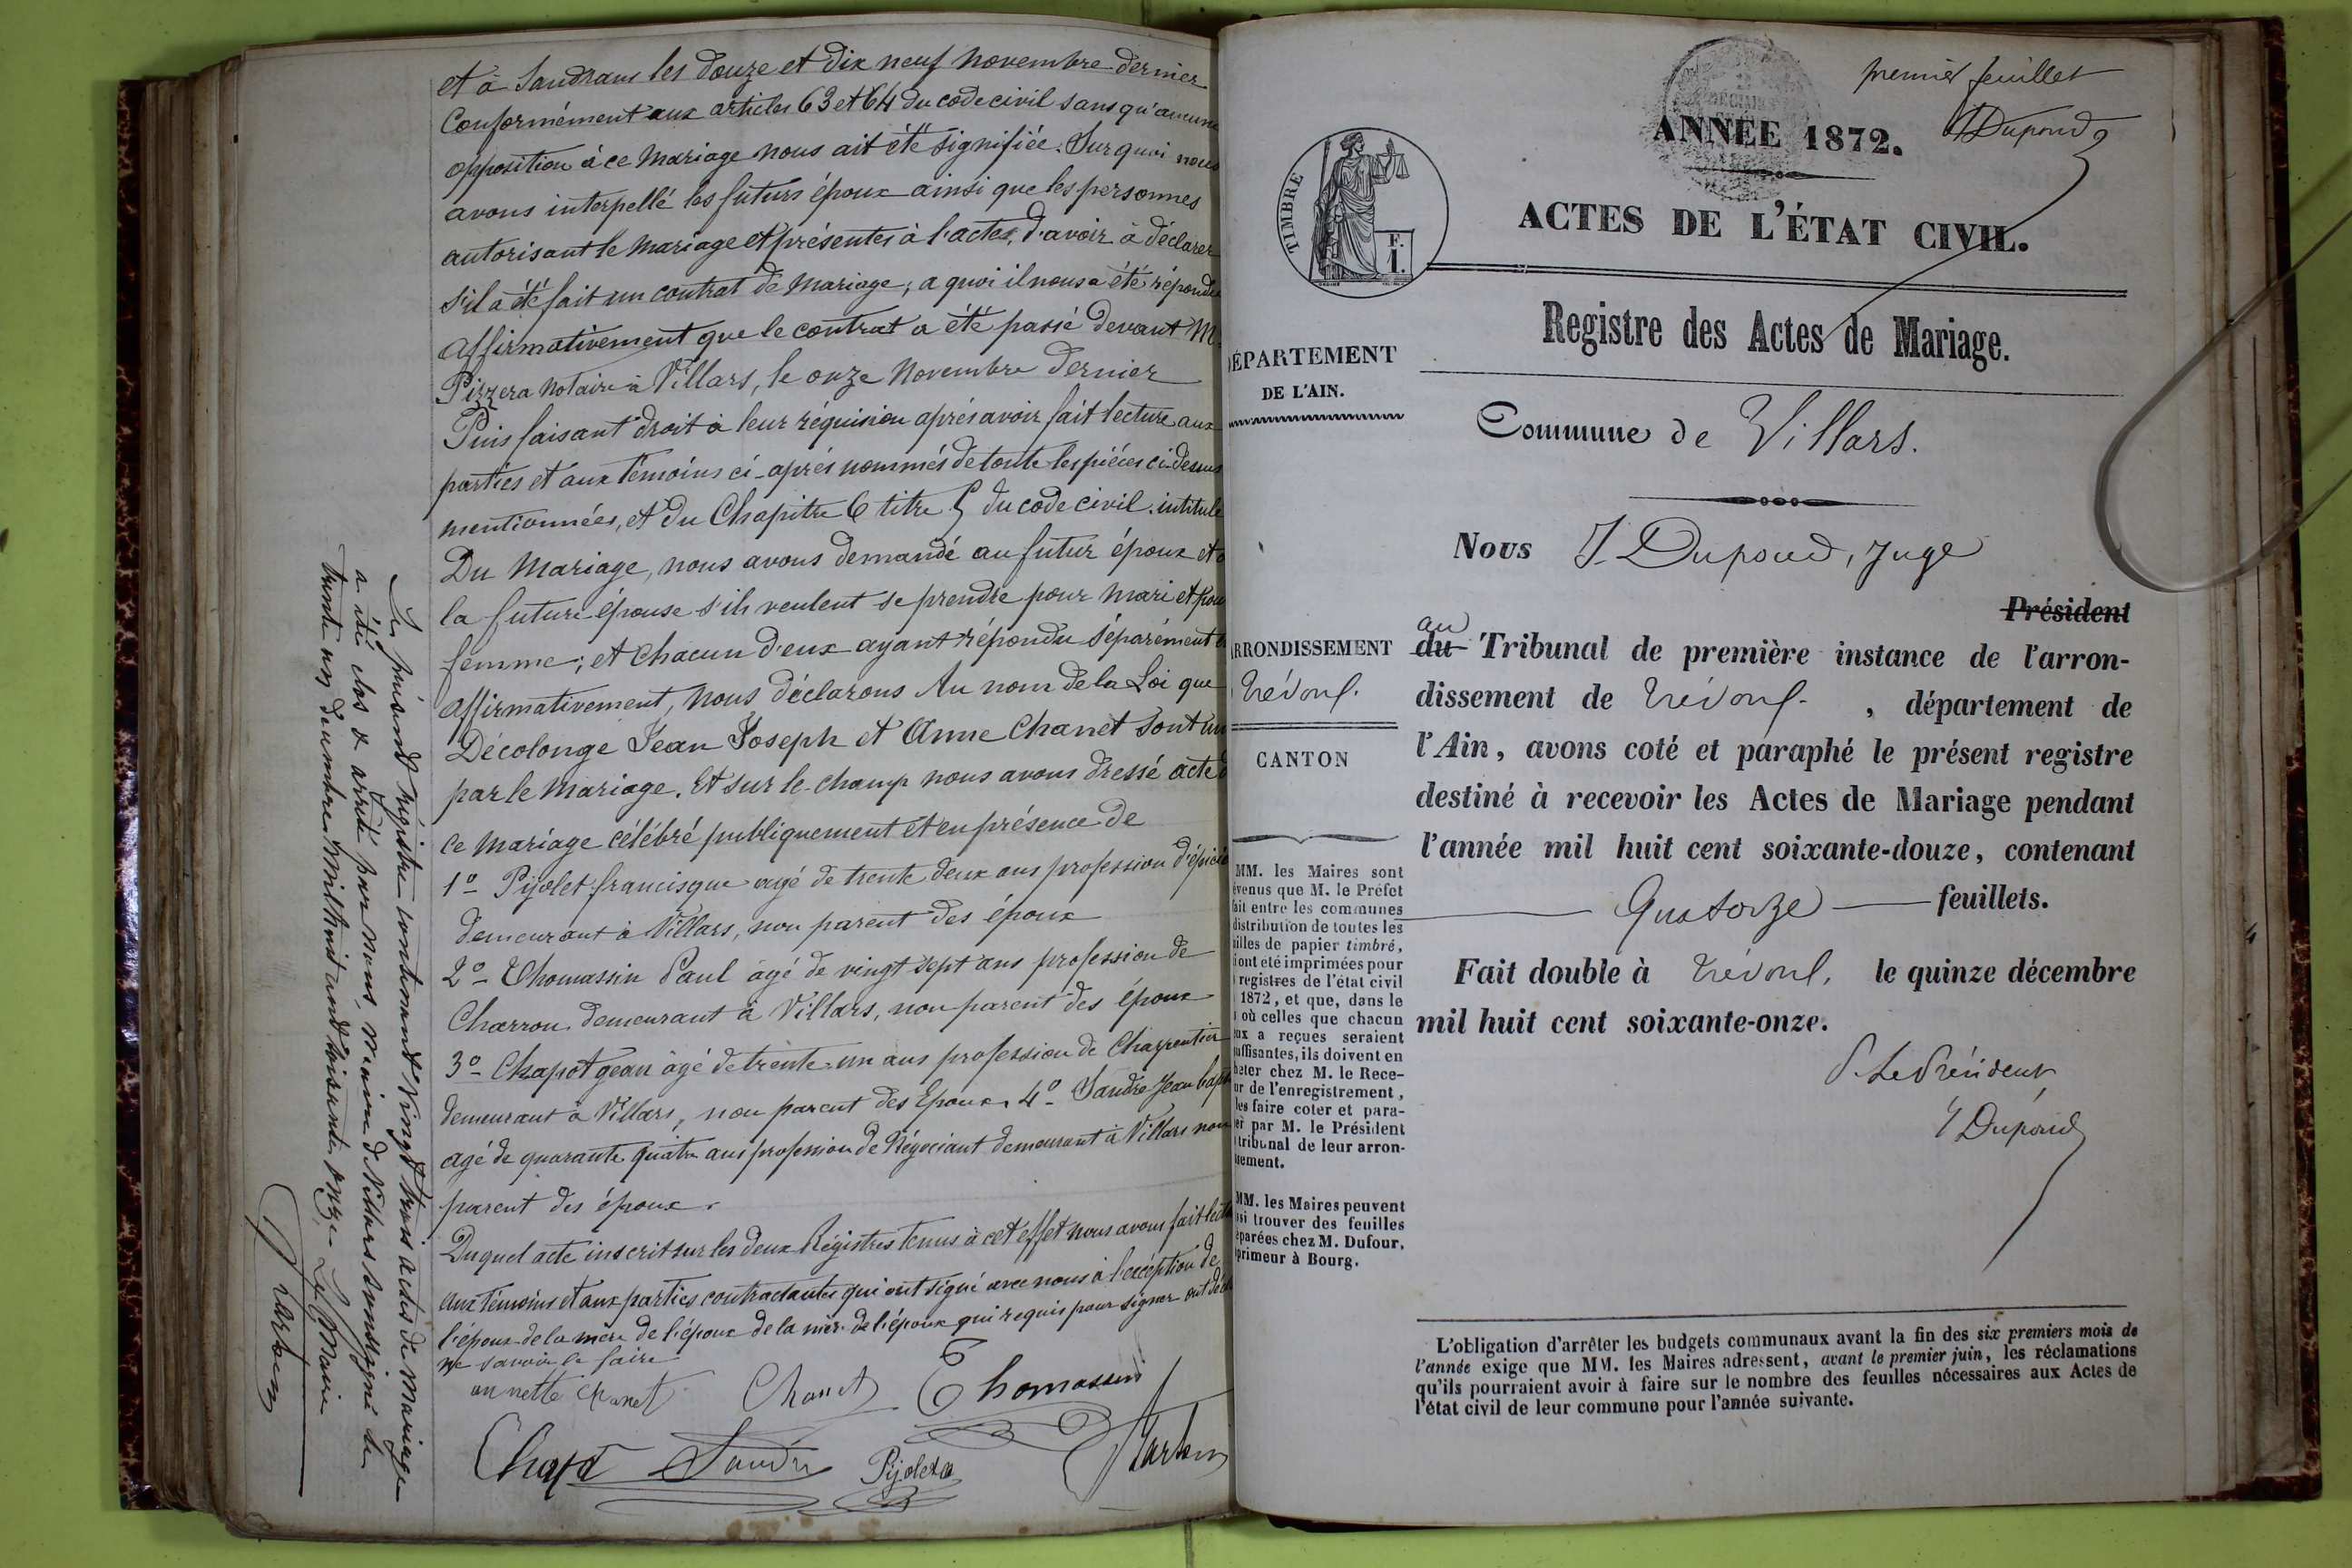 et à Sandrans les douze et dix neuf novembre dernier
Conformément aux articles 63 et 64 du code civil sans qu'aucune
opposition à ce mariage nous ait été signifiée. Sur quoi nous
avons interpellé les futurs époux ainsi que les personnes
autorisant le mariage et présentes à l'acte, d'avoir à déclarer
s'il a été fait un contrat de mariage; a quoi il nous a été répondu
affirmativement que le contrat a été passé devant M.
Pizzera notaire à Villars, le onze Novembre dernier
Puis faisant droit à leur réquision après avoir fait lecture aux
parties et aux témoins ci-après nommés de toute les pièces ci-dessus
mentionnées, et du Chapitre 6 titre 5 du code civil. intitulé
Du Mariage, nous avons demandé au futur époux et à
la future épouse s'ils veulent se prendre pour mari et pour
femme; et chacun d'eux ayant répondu séparément et
affirmativement, nous déclarons Au nom de la Loi que
Décolonge Jean Joseph et Anne Chanet sont uni
par le mariage. Et sur le-champ nous avons dressé acte d
ce mariage célébré publiquement et en présence de
1º- Pijolet francisque agé de trente deux ans profession d'épicier
demeurant à Villars, non parent des époux
2º- Thomassin Paul âgé de vingt sept ans profession de
Charron demeurant à Villars, non parent des époux
3º- Chapot Jean âgé de trente-un ans profession de Charpentier
demeurant à Villars, non parent des Epoux. 4º- Sandre Jean bapt
agé de quarante quatre ans profession de Négociant demeurant à Villars non
parent des époux.
Duquel acte inscrit sur les deux Régistres tenus à cet effet nous avons fait lect
aux témoins et aux parties contractantes qui ont signé avec nous à l'exception de
l'époux de la mère de l'époux de la mère de l'épouse qui requis pour signer ont décl
ne savoir le faire
annette chanet Chanet Thomassin
Chapot Sandre Pijolet
Le présent régistre contenant Vingt trois actes de Mariage
a été clos & arrêté par nous, Maire de Villars soussigné le
trente un décembre Mil huit cent soixante onze. Le Maire
premier feuillet
J Dupond
ANNÉE 1872.
ACTES DE L'ÉTAT CIVIL.
TIMBRE
F.
1.
Registre des Actes de Mariage.
DÉPARTEMENT
DE L'AIN.
Commune de Villars.
Nous J. Dupond, Juge
Président
au
ARRONDISSEMENT
Trévoux.
CANTON
du Tribunal de première instance de l'arron-
dissement de Trévoux. , département de
l'Ain, avons coté et paraphé le présent registre
destiné à recevoir les Actes de Mariage pendant
l'année mil huit cent soixante-douze, contenant
Quatorze feuillets.
Fait double à Trévoux, le quinze décembre
mil huit cent soixante-onze.
P. Le Président
J Dupond
MM. les Maires sont
évenus que M. le Préfet
fait entre les communes
distribution de toutes les
uilles de papier timbré,
i ont été imprimées pour
registres de l'état civil
1872, et que, dans le
où celles que chacun
eux a reçues seraient
uffisantes, ils doivent en
heter chez M. le Rece-
ur de l'enregistrement,
les faire coter et para-
er par M. le Président
tribunal de leur arron-
ssement.
MM. les Maires peuvent
ssi trouver des feuilles
éparées chez M. Dufour,
primeur à Bourg.
L'obligation d'arrêter les budgets communaux avant la fin des six premiers mois de
l'année exige que MM. les Maires adressent, avant le premier juin, les réclamations
qu'ils pourraient avoir à faire sur le nombre des feuilles nécessaires aux Actes de
l'état civil de leur commune pour l'année suivante.